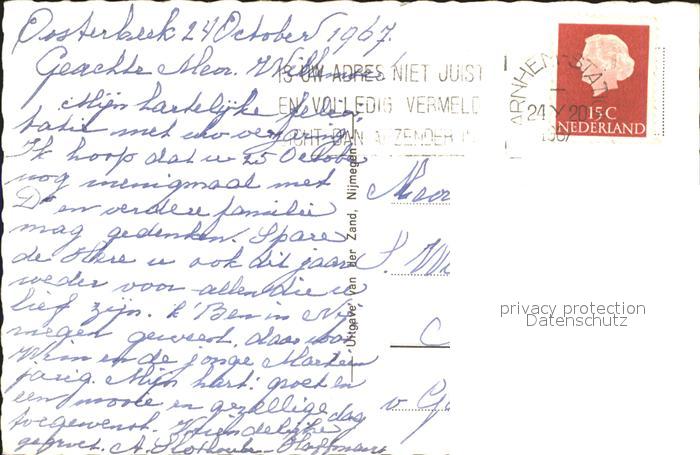 Oosterbeek 24 October 1967.
Geachte Mevr.
Mijn hartelijke felici
tatie met uw verjaring
Ik hoop dat u 25 October
nog menigmaal met
Dr en verdere familie
mag gedenken. Spare
de Here u ook dit jaar
weder voor allen die u
lief zijn. k'Ben in Nij
megen geweest, daar was
Wim en de jonge Martin
jarig. Mijn hart. groet en
een mooie en gezellige dag
toegewenst. Vriendelijke
gegroet. A.
IS UW ADRES NIET JUIST
EN VOLLEDIG VERMELD
LICHT DAN AFZENDER IN
ARNHEM-STATION
24 X 20
1967
15 C
NEDERLAND
Uitgave van der Zand, Nijmegen
Mevr
S. Wi
privacy protection
Datenschutz